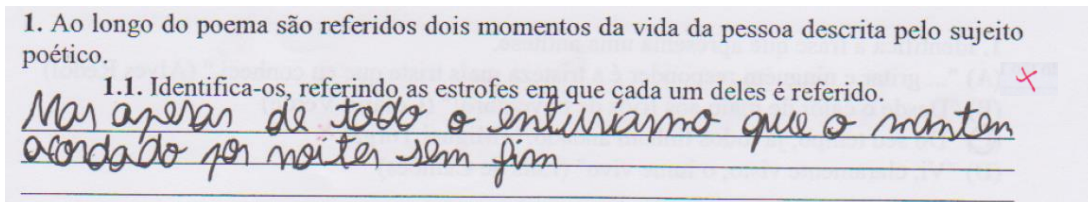 1. Ao longo do poema são referidos dois momentos da vida da pessoa descrita pelo sujeito
poético.
1.1. Identifica-os, referindo as estrofes em que cada um deles é referido.
Mas apesar de todo o entusiasmo que o manten
acordado por noites sem fim